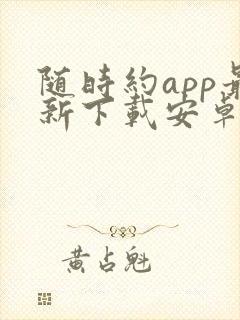 随时約app最
新下載安卓
黄占魁